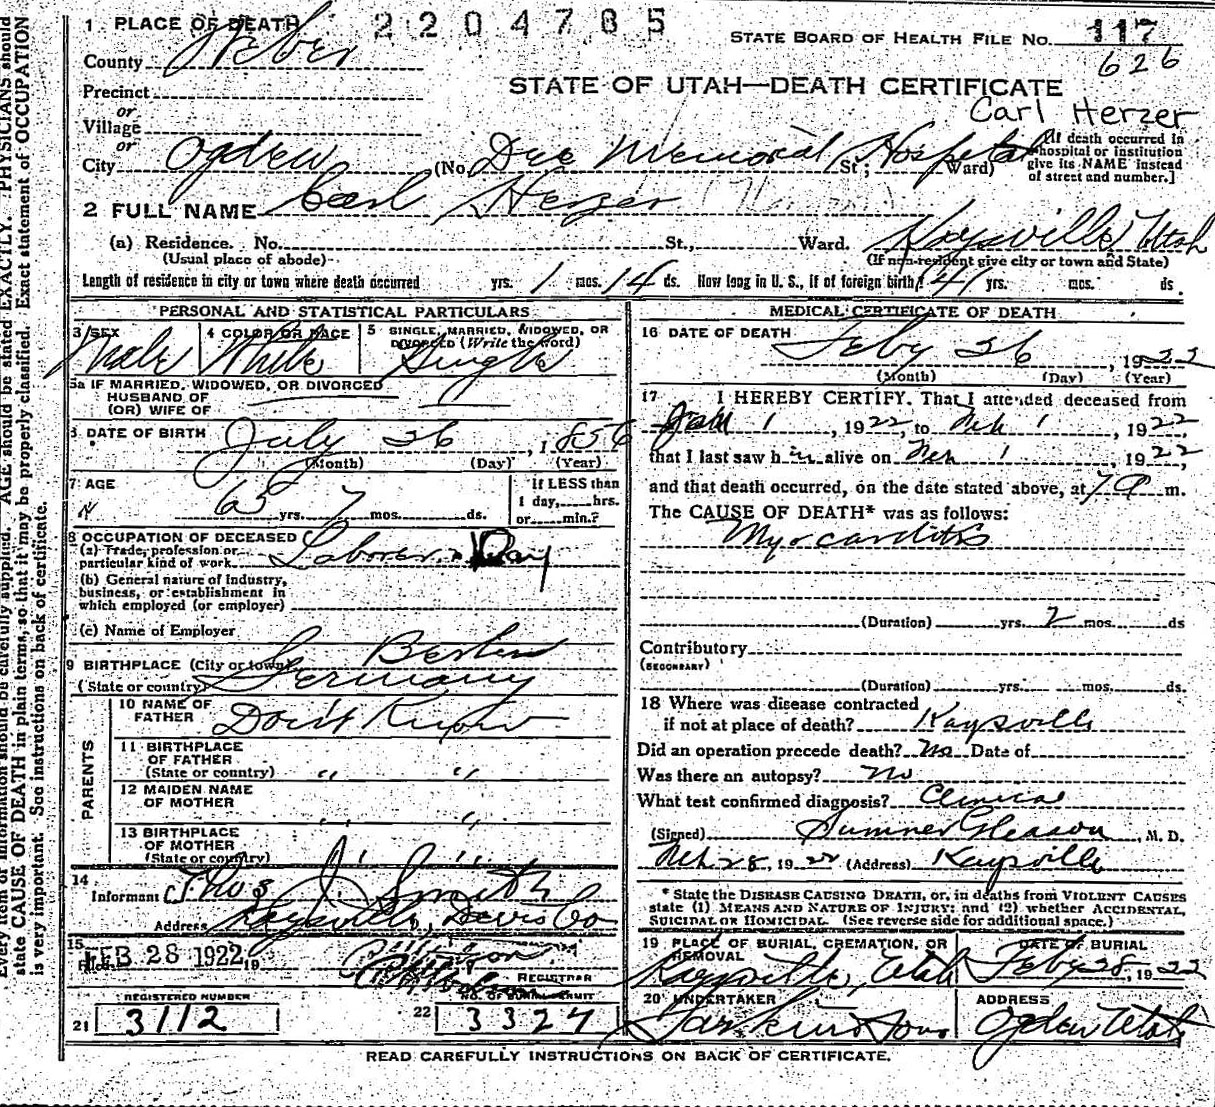 1 PLACE OF DEATH 2204785
County Weber STATE BOARD OF HEALTH FILE NO. 117
626
Precinct
or
Village
or
STATE OF UTAH—DEATH CERTIFICATE
Carl Herzer
City Ogden (No. Dee Memorial Hospital St; Ward)
[If death occurred in
hospital or institution
give its NAME instead
of street and number.]
2 FULL NAME Carl Herzer
(a) Residence. No. St., Ward. Kaysville Utah
(Usual place of abode) (If non-resident give city or town and State)
Length of residence in city or town where death occurred yrs. 1 mos. 14 ds. How long in U. S., if of foreign birth? 41 yrs. mos. ds.
PERSONAL AND STATISTICAL PARTICULARS
3 SEX
Male
4 COLOR OR RACE
White
5 SINGLE, MARRIED, WIDOWED, OR
DIVORCED (Write the word)
Single
5a IF MARRIED, WIDOWED, OR DIVORCED
HUSBAND OF
(OR) WIFE OF
6 DATE OF BIRTH July 26, 1856
(Month) (Day) (Year)
7 AGE
65 yrs. 7 mos. ds.
If LESS than
1 day, hrs.
or min.?
8 OCCUPATION OF DECEASED
(a) Trade, profession or
particular kind of work Laborer Day
(b) General nature of Industry,
business, or establishment in
which employed (or employer)
(c) Name of Employer
9 BIRTHPLACE (City or town) Berlin
(State or country) Germany
PARENTS
10 NAME OF
FATHER Don't Know
11 BIRTHPLACE
OF FATHER
(State or country) " "
12 MAIDEN NAME
OF MOTHER " "
13 BIRTHPLACE
OF MOTHER
(State or country) " "
14
Informant Thos J. Smith
Address Kaysville, Davis Co
15
Filed FEB 28 1922, 19
REGISTRAR
REGISTERED NUMBER
21 3112
NO. OF BURIAL PERMIT
22 3327
MEDICAL CERTIFICATE OF DEATH
16 DATE OF DEATH
Feby 26, 1922
(Month) (Day) (Year)
17 I HEREBY CERTIFY, That I attended deceased from
Jan 1, 1922, to Feb 1, 1922,
that I last saw him alive on Feb 1, 1922,
and that death occurred, on the date stated above, at 7 m.
The CAUSE OF DEATH* was as follows:
Myocarditis
(Duration) yrs. 2 mos. ds
Contributory
(SECONDARY)
(Duration) yrs. mos. ds.
18 Where was disease contracted
if not at place of death? Kaysville
Did an operation precede death? No Date of
Was there an autopsy? No
What test confirmed diagnosis? Clinical
(Signed) Sumner Gleason, M. D.
Feb 28, 1922 (Address) Kaysville
* State the DISEASE CAUSING DEATH, or, in deaths from VIOLENT CAUSES
state (1) MEANS AND NATURE OF INJURY; and (2) whether ACCIDENTAL,
SUICIDAL OR HOMICIDAL. (See reverse side for additional space.)
19 PLACE OF BURIAL, CREMATION, OR
REMOVAL
Kaysville, Utah
DATE OF BURIAL
Feby 28, 1922
20 UNDERTAKER
Larkin & Sons
ADDRESS
Ogden Utah
READ CAREFULLY INSTRUCTIONS ON BACK OF CERTIFICATE.
Every item of information should be carefully supplied. AGE should be stated EXACTLY. PHYSICIANS should
state CAUSE OF DEATH in plain terms, so that it may be properly classified. Exact statement of OCCUPATION
is very important. See instructions on back of certificate.